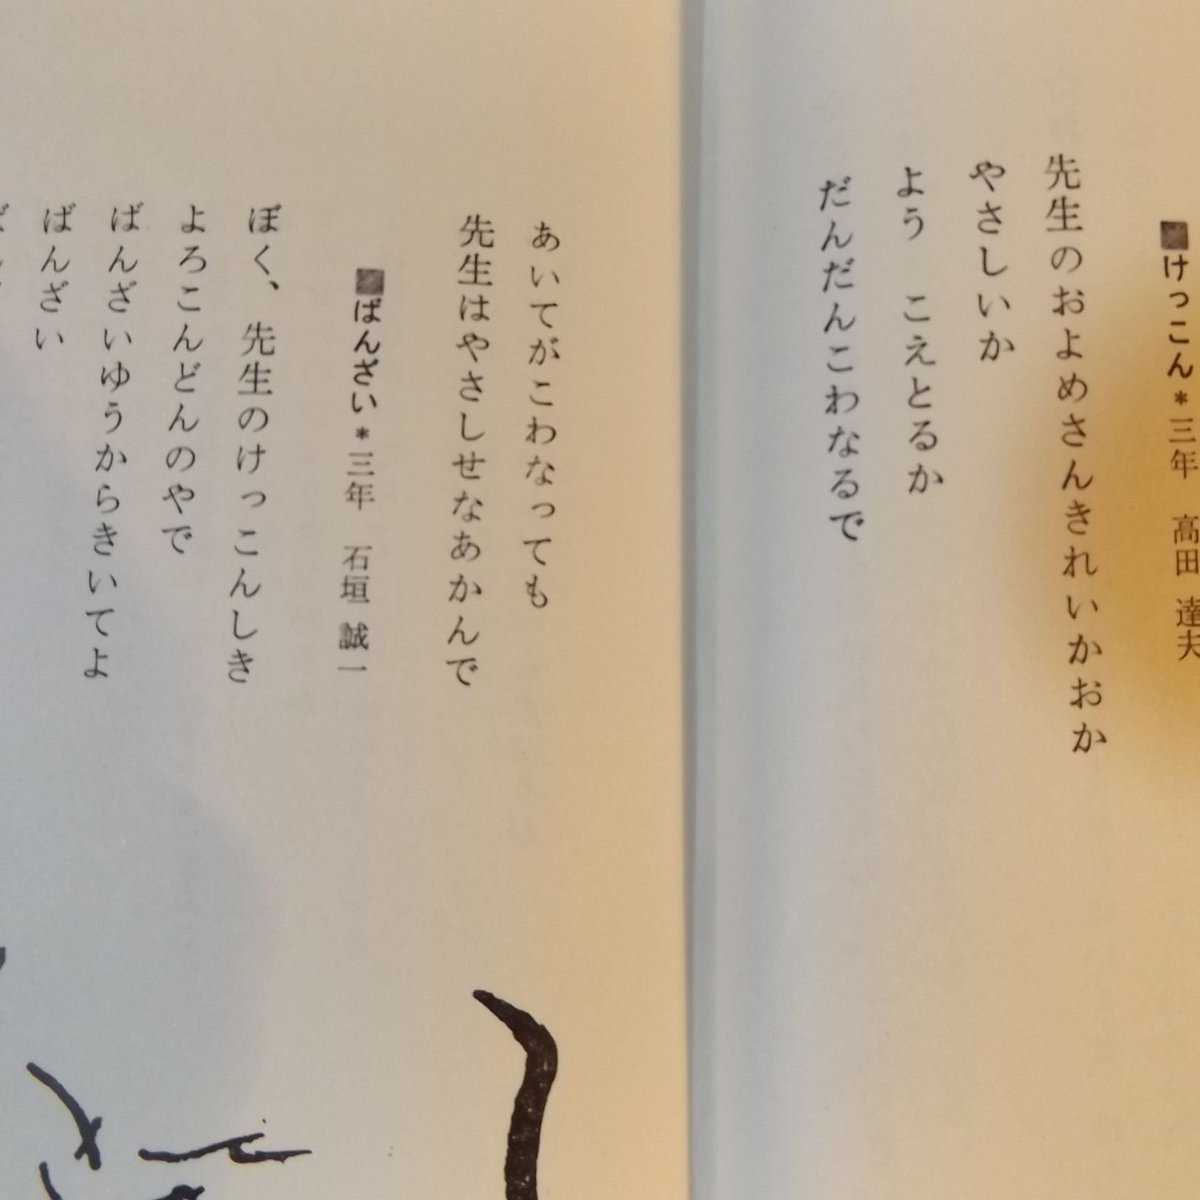 ■けっこん＊三年　高田 達夫
先生のおよめさんきれいかおか
やさしいか
よう こえとるか
だんだんこわなるで
あいてがこわなっても
先生はやさしせなあかんで
■ばんざい＊三年　石垣 誠一
ぼく、先生のけっこんしき
よろこんどんのやで
ばんざいゆうからきいてよ
ばんざい